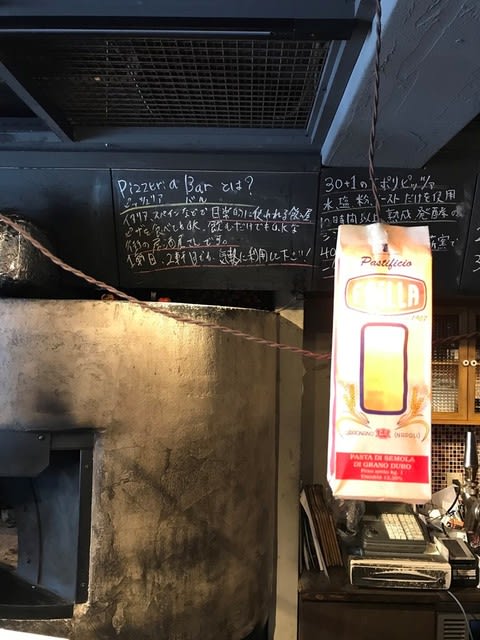 Pizzeria Bar とは?
ピッツェリア バル
イタリア スペインなどで 日常的に使われる飲み屋
ピザを食べてもOK、飲むだけでもOKな
街の居酒屋さんです。
毎日、2軒目でも、気軽に利用して下さい!
30+1の ナポリピッツァ
水、塩、粉、イーストだけを使用
熟成、発酵の
40
Pastificio
1952
(NAPOLI)
PASTA DI SEMOLA
DI GRANO DURO
Peso netto kg. 1